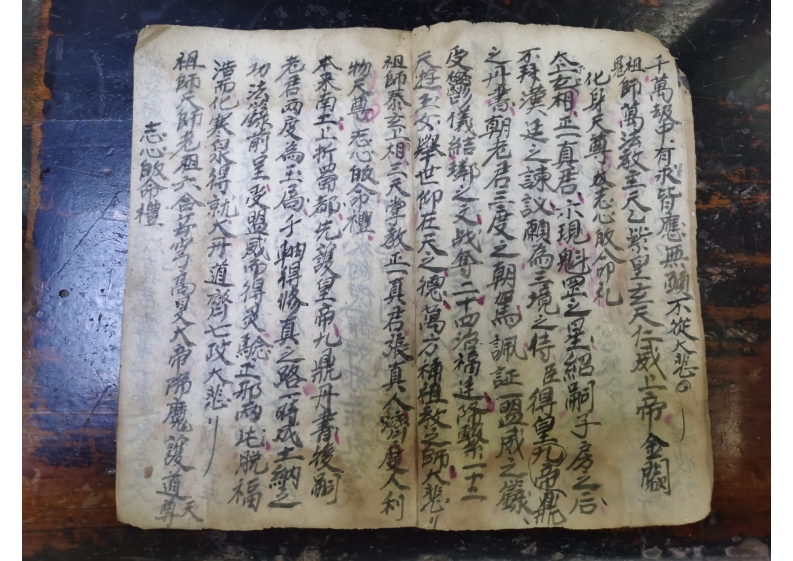 千萬喚中有求皆應無願不從大悲
祖師萬法教主天乙紫皇玄天仁威上帝金闕
化身天尊 志心皈命礼
太玄相正一真君示現魁罡之星紹嗣子房之后
不拜漢廷之諫議願為三境之侍臣得皇九帝鼎
之丹書朝老君三度之朝 佩証一盟威之籙
受欝儀結璘之元战奪二十四治福逹降 二十二
天逰玉女舉世仰在天之德萬方稱祖教之師大悲
祖師泰玄上相三天掌教正一真君張真人濟度人利
物天尊 志心皈命禮
本来南土上折蜀都先護皇帝九鼎丹書後嗣
老君两度為玉局于 得修真之路一時成土納之
功法籙前呈受盟威而得灵驗正邪两 脱福
浩而化寒泉得就大丹道齊七政大悲
祖師天師老祖六合 高旻大帝降魔護道天尊
志心皈命禮